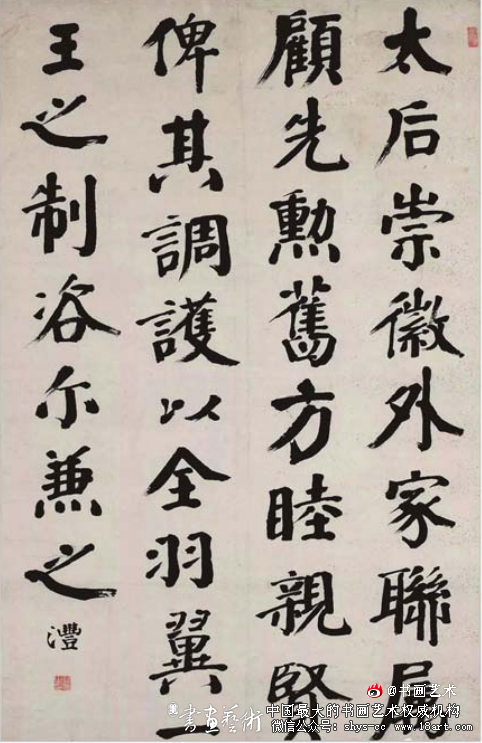 太后崇徽外家聯屬
顧先勳舊方睦親賢
俾其調護以全羽翼一
王之制咨尔兼之
灃
@书画艺术
書畫藝術
中国最大的书画艺术权威机构
微信公众号: shys-cc www.18art.com